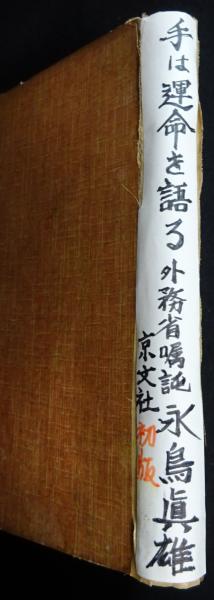 手は運命を語る
外務省嘱託
永鳥眞雄
京文社
初版